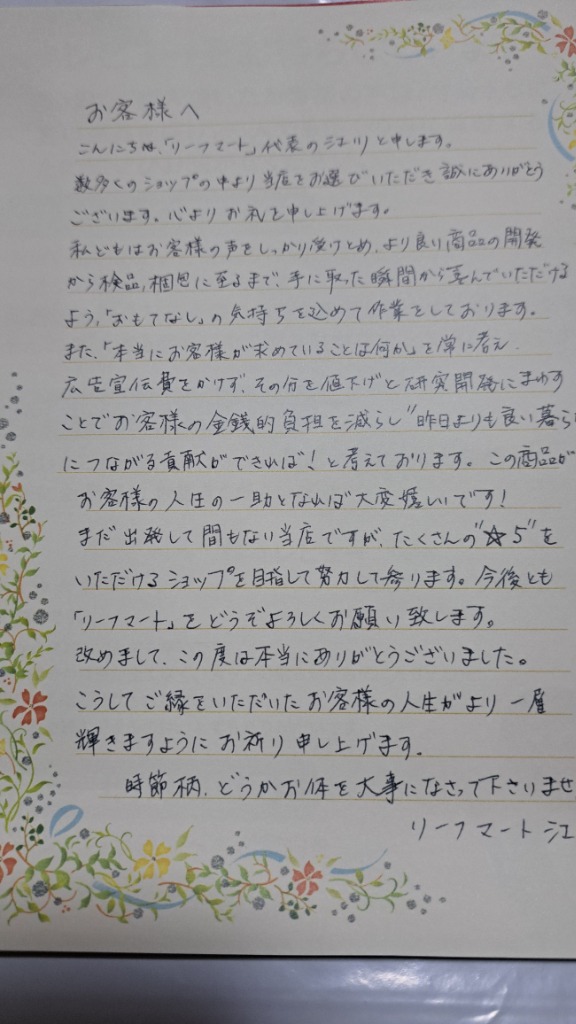 お客様へ
こんにちは、「リーフマート」代表の江川と申します。
数多くのショップの中より当店をお選びいただき誠にありがとう
ございます。心よりお礼を申し上げます。
私どもはお客様の声をしっかり受けとめ、より良い商品の開発
から検品、梱包に至るまで、手に取った瞬間から喜んでいただける
よう、「おもてなし」の気持ちを込めて作業をしております。
また、「本当にお客様が求めていることは何か」を常に考え、
広告宣伝費をかけず、その分を値下げと研究開発にまわす
ことでお客様の金銭的負担を減らし"昨日よりも良い暮ら
につながる貢献ができれば!と考えております。この商品が
お客様の人生の一助となれば大変嬉しいです!
まだ出発して間もない当店ですが、たくさんの"☆5"を
いただけるショップを目指して努力して参ります。今後とも
「リーフマート」をどうぞよろしくお願い致します。
改めまして、この度は本当にありがとうございました。
こうしてご縁をいただいたお客様の人生がより一層
輝きますようにお祈り申し上げます。
時節柄、どうかお体を大事になさって下さいませ
リーフマート 江